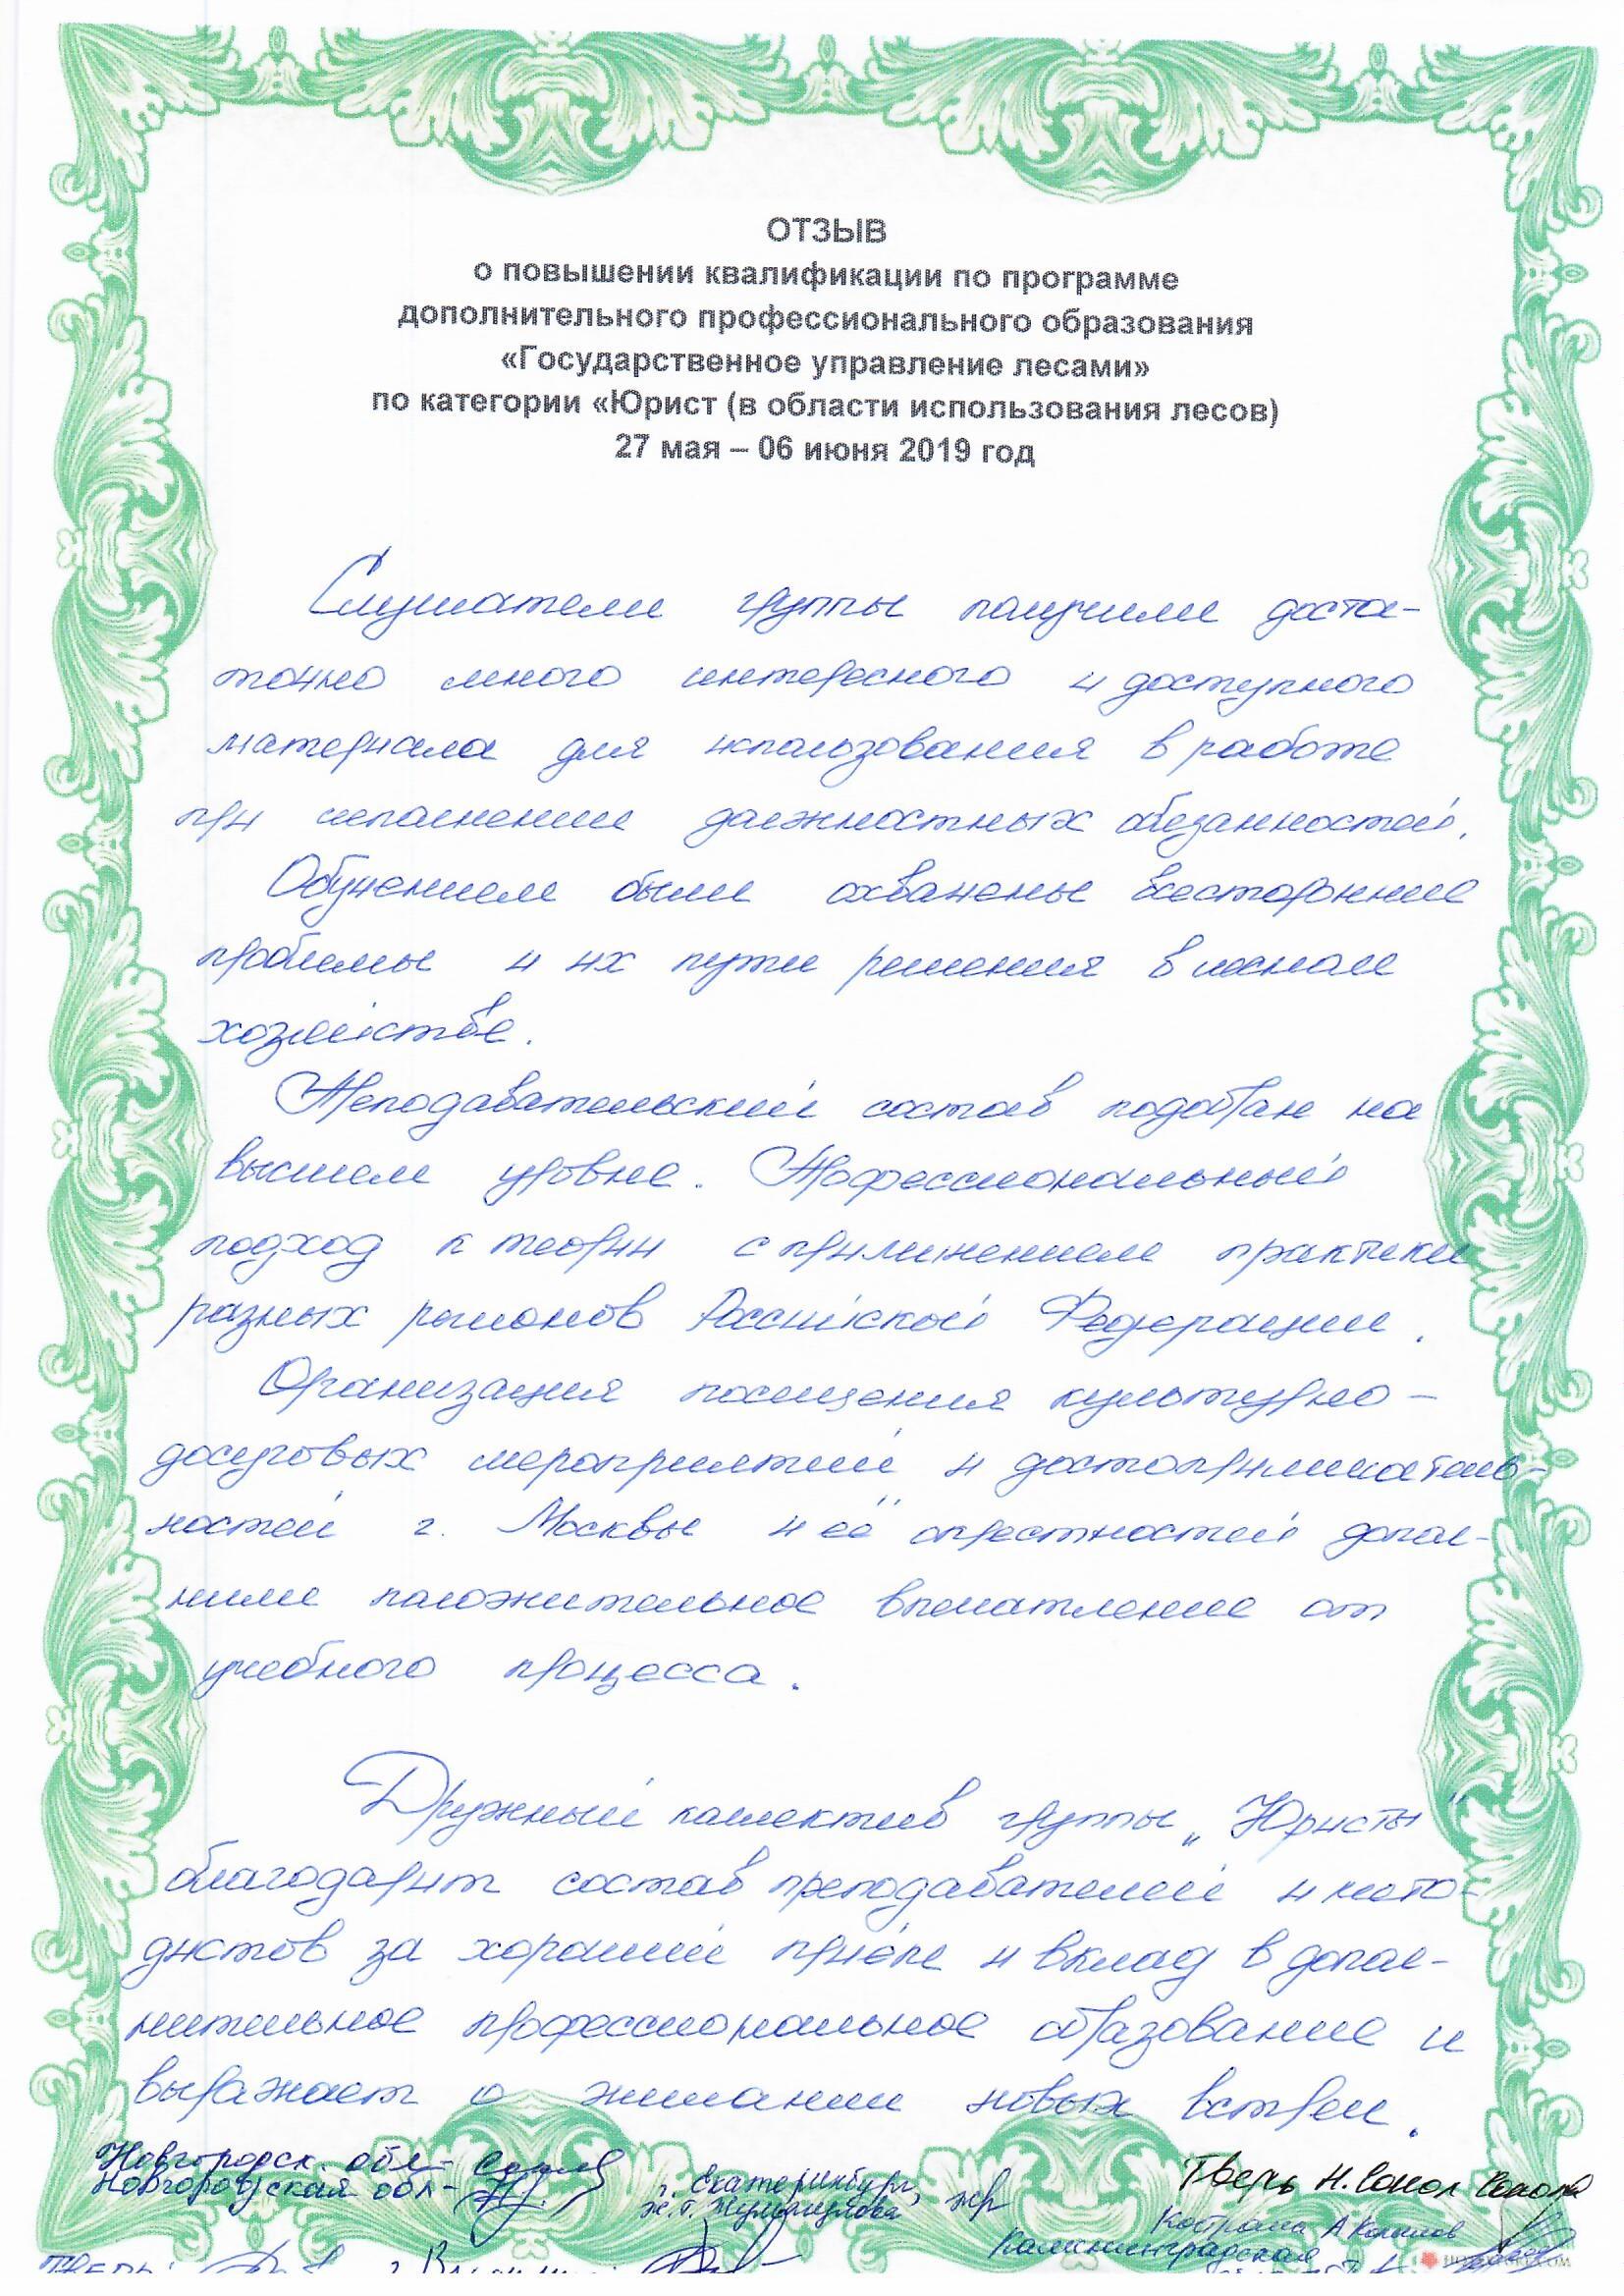 ОТЗЫВ
о повышении квалификации по программе
дополнительного профессионального образования
«Государственное управление лесами»
по категории «Юрист (в области использования лесов)
27 мая – 06 июня 2019 год
Слушатели группы получили доста-
точно много интересного и доступного
материала для использования в работе
при исполнении должностных обязанностей.
Обучением были охвачены всесторонние
проблемы и их пути решения в лесном
хозяйстве.
Преподавательский состав подобран на
высшем уровне. Профессиональный
подход к теории с применением практики
разных регионов Российской Федерации.
Организация посещения культурно-
досуговых мероприятий и достопримечатель-
ностей г. Москвы и её окрестностей допол-
нили положительное впечатление от
учебного процесса.
Дружный коллектив группы „Юристы"
благодарит состав преподавателей и мето-
дистов за хороший приём и вклад в допол-
нительное профессиональное образование и
выражает о желании новых встреч.
Новгородск. обл-
Новгородская обл-
г. Екатеринбург,
Тверь Н. Сокол
Кострома А
Калининградская
Тверь: